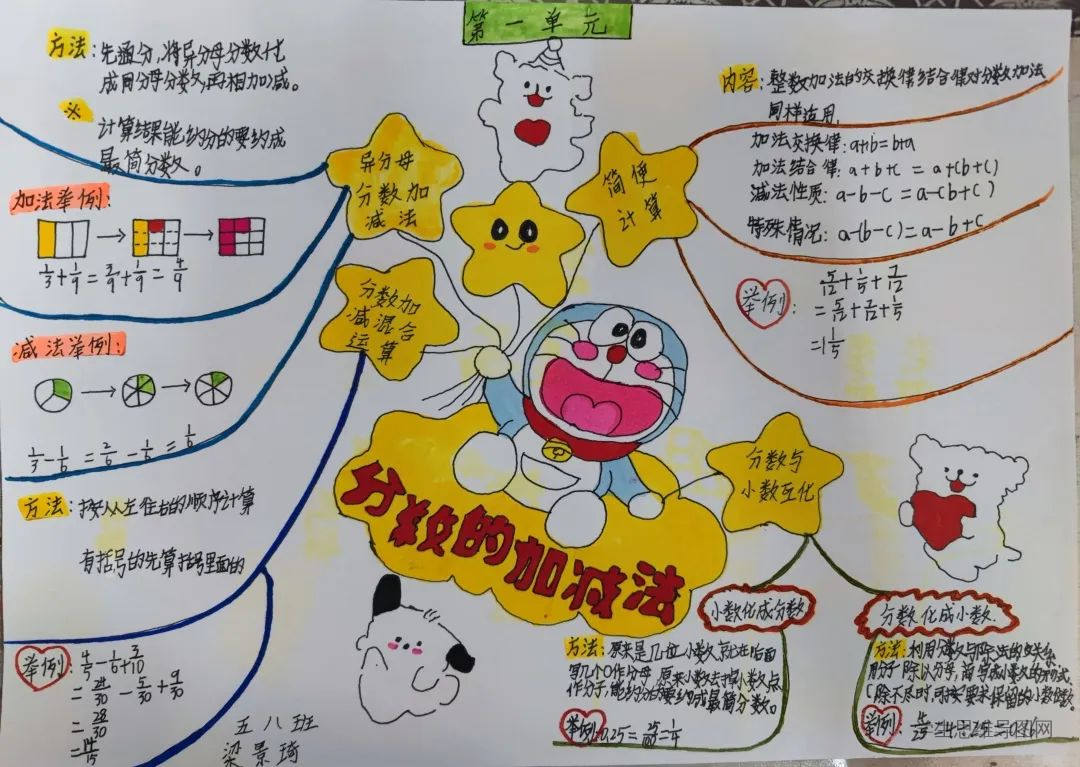 第一单元
方法：先通分，将异分母分数化
成同分母分数，再相加减。
※
计算结果能约分的要约成
最简分数。
加法举例：
1/3+1/9=3/9+1/9=4/9
减法举例：
1/3-1/6=2/6-1/6=1/6
异分母
分数加
减法
分数加
减混合
运算
方法：按从左往右的顺序计算
有括号的先算括号里面的
举例：4/5-1/6+3/10
=24/30-5/30+9/30
=28/30
=14/15
五八班
梁景琦
简便
计算
内容：整数加法的交换律结合律对分数加法
同样适用.
加法交换律：a+b=b+a
加法结合律：a+b+c=a+(b+c)
减法性质：a-b-c=a-(b+c)
特殊情况：a-(b-c)=a-b+c
举例：
5/12+1/5+7/12
=5/12+7/12+1/5
=1 1/5
分数的加减法
分数与
小数互化
小数化成分数
方法：原来是几位小数，就在后面
写几个0作分母，原来小数去掉小数点
作分子，能约分的要约成最简分数。
举例：0.25=25/100=1/4
分数化成小数.
方法：利用分数与除法的关系
用分子除以分母，商写成小数的形式
(除不尽时可按要求保留的小数位数.
举例：4/25
思维导图网